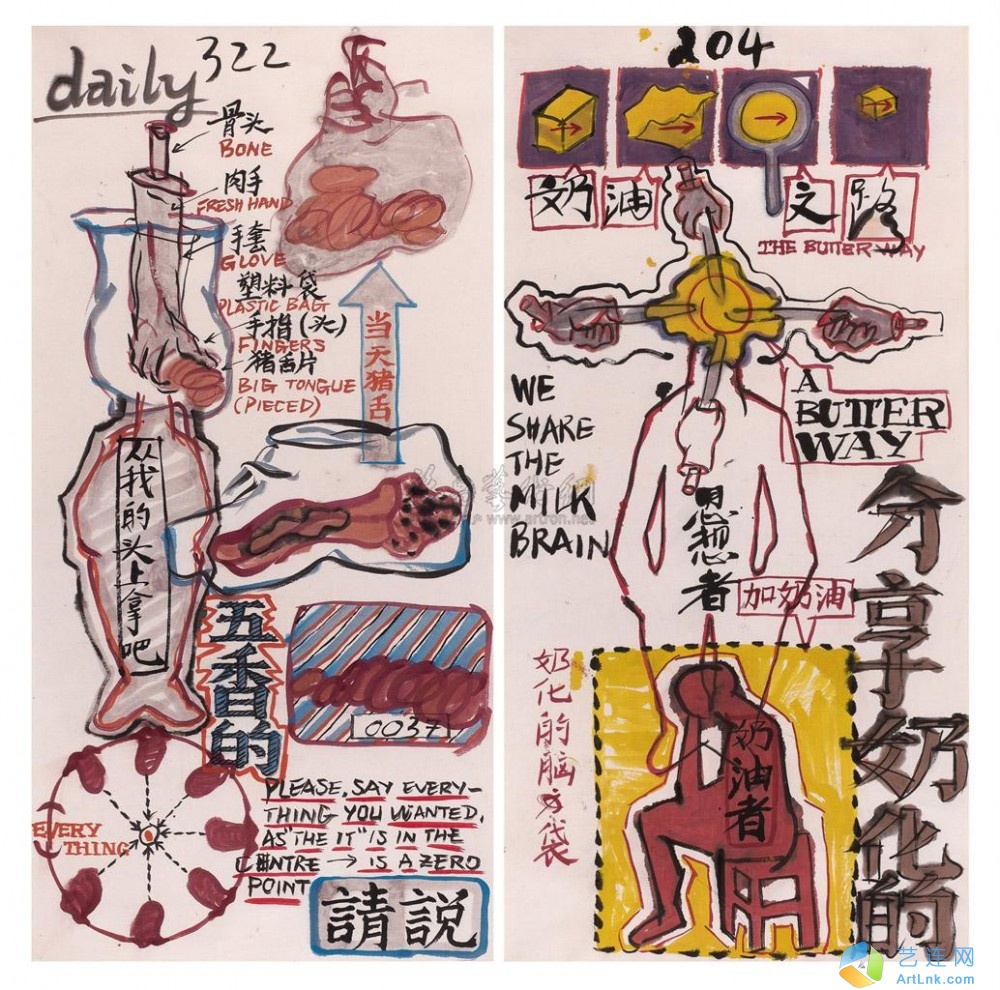 daily 322
骨头
BONE
肉手
FRESH HAND
手套
GLOVE
塑料袋
PLASTIC BAG
手指(头)
FINGERS
猪舌片
BIG TONGUE
(PIECED)
当天猪舌
从我的头上拿吧
五香的
0037
EVERY
THING
PLEASE, SAY EVERY-
THING YOU WANTED,
AS "THE IT" IS IN THE
CENTRE → IS A ZERO
POINT
請説
204
奶油之路
THE BUTTER WAY
WE
SHARE
THE
MILK
BRAIN
A
BUTTER
WAY
思想者
加奶油
奶化的脑袋
奶油者
分享奶化的
www.artron.net
艺连网
ArtLnk.com